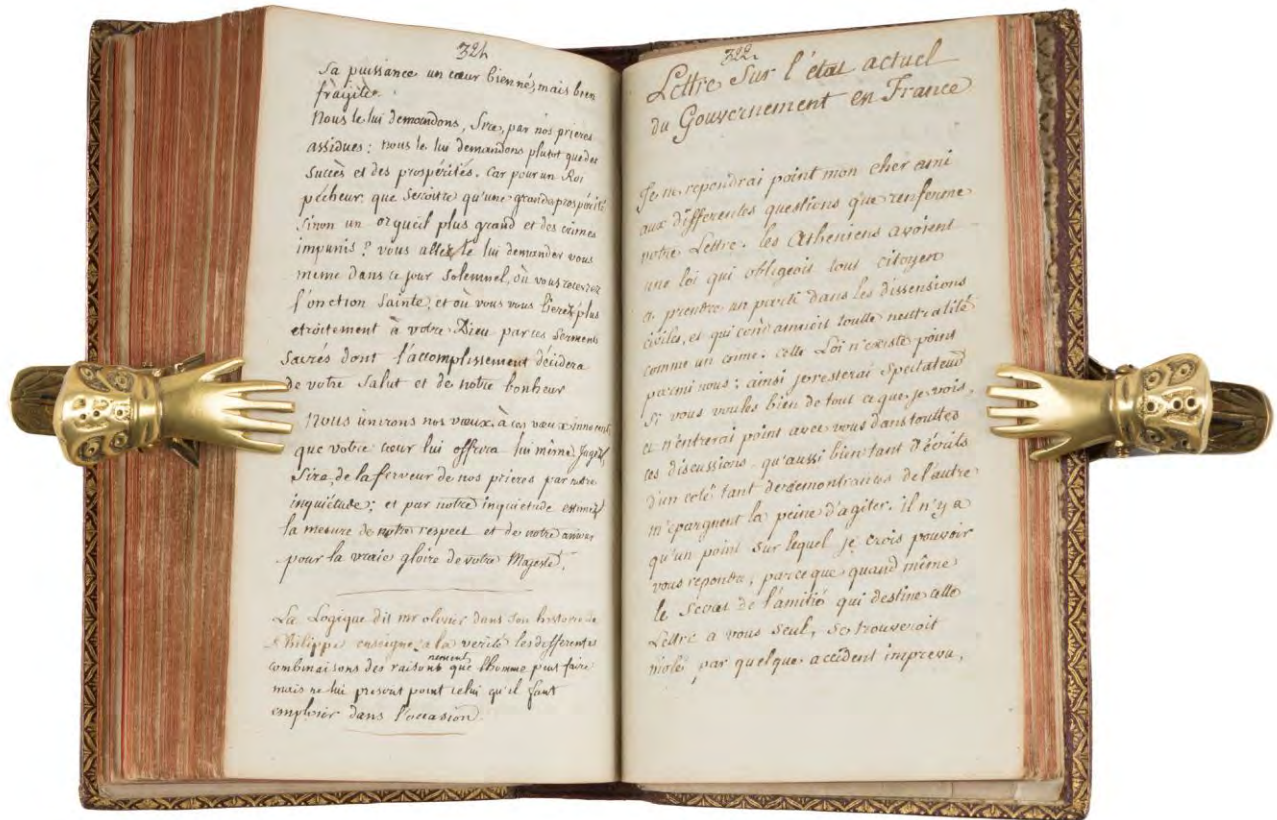 321
Sa puissance un cœur bien né, mais bien
fragile.
Nous le lui demandons, Sire, par nos prieres
assidues : nous le lui demandons plutot que des
succès et des prospérités. Car pour un Roi
pécheur, que seroitce qu'une grande prospérité
sinon un orgueil plus grand et des crimes
impunis ? vous allez le lui demander vous
meme dans ce jour solemnel, où vous recevrez
l'onction Sainte, et où vous vous lierez plus
etroitement à votre Dieu par ces Serments
Sacrés dont l'accomplissement décidera
de votre Salut et de notre bonheur
Nous unirons nos vœux à ces vœux
que votre cœur lui offrira lui même. Jugez,
Sire, de la ferveur de nos prieres par notre
inquiétude ; et par notre inquietude estimez
la mesure de notre respect et de notre amour
pour la vraie gloire de votre Majesté.
La Logique dit mr olivier dans son histoire de
Philippe enseigne a la verité les differentes
combinaisons des raisonnement que l'homme peut faire
mais ne lui prescrit point celui qu'il faut
emploier dans l'occasion.
322
Lettre Sur l'état actuel
du Gouvernement en France
Je ne repondrai point mon cher ami
aux differentes questions que renferme
votre Lettre. les Atheniens avoient
une loi qui obligeoit tout citoyen
a prendre un parti dans les dissensions
civiles, et qui condamnoit toutte neutralité
comme un crime. cette Loi n'existe point
parmi nous : ainsi je resterai Spectateur
Si vous voulés bien de tout ce que je vois,
et n'entrerai point avec vous dans touttes
ces discussions qu'aussi bien tant d'écrits
d'un coté tant de remontrances de l'autre
m'epargnent la peine d'agiter. il n'y a
qu'un point sur lequel je crois pouvoir
vous repondre, parceque quand même
le Secret de l'amitié qui destine cette
Lettre a vous seul, se trouveroit
violé par quelque accident imprevu,